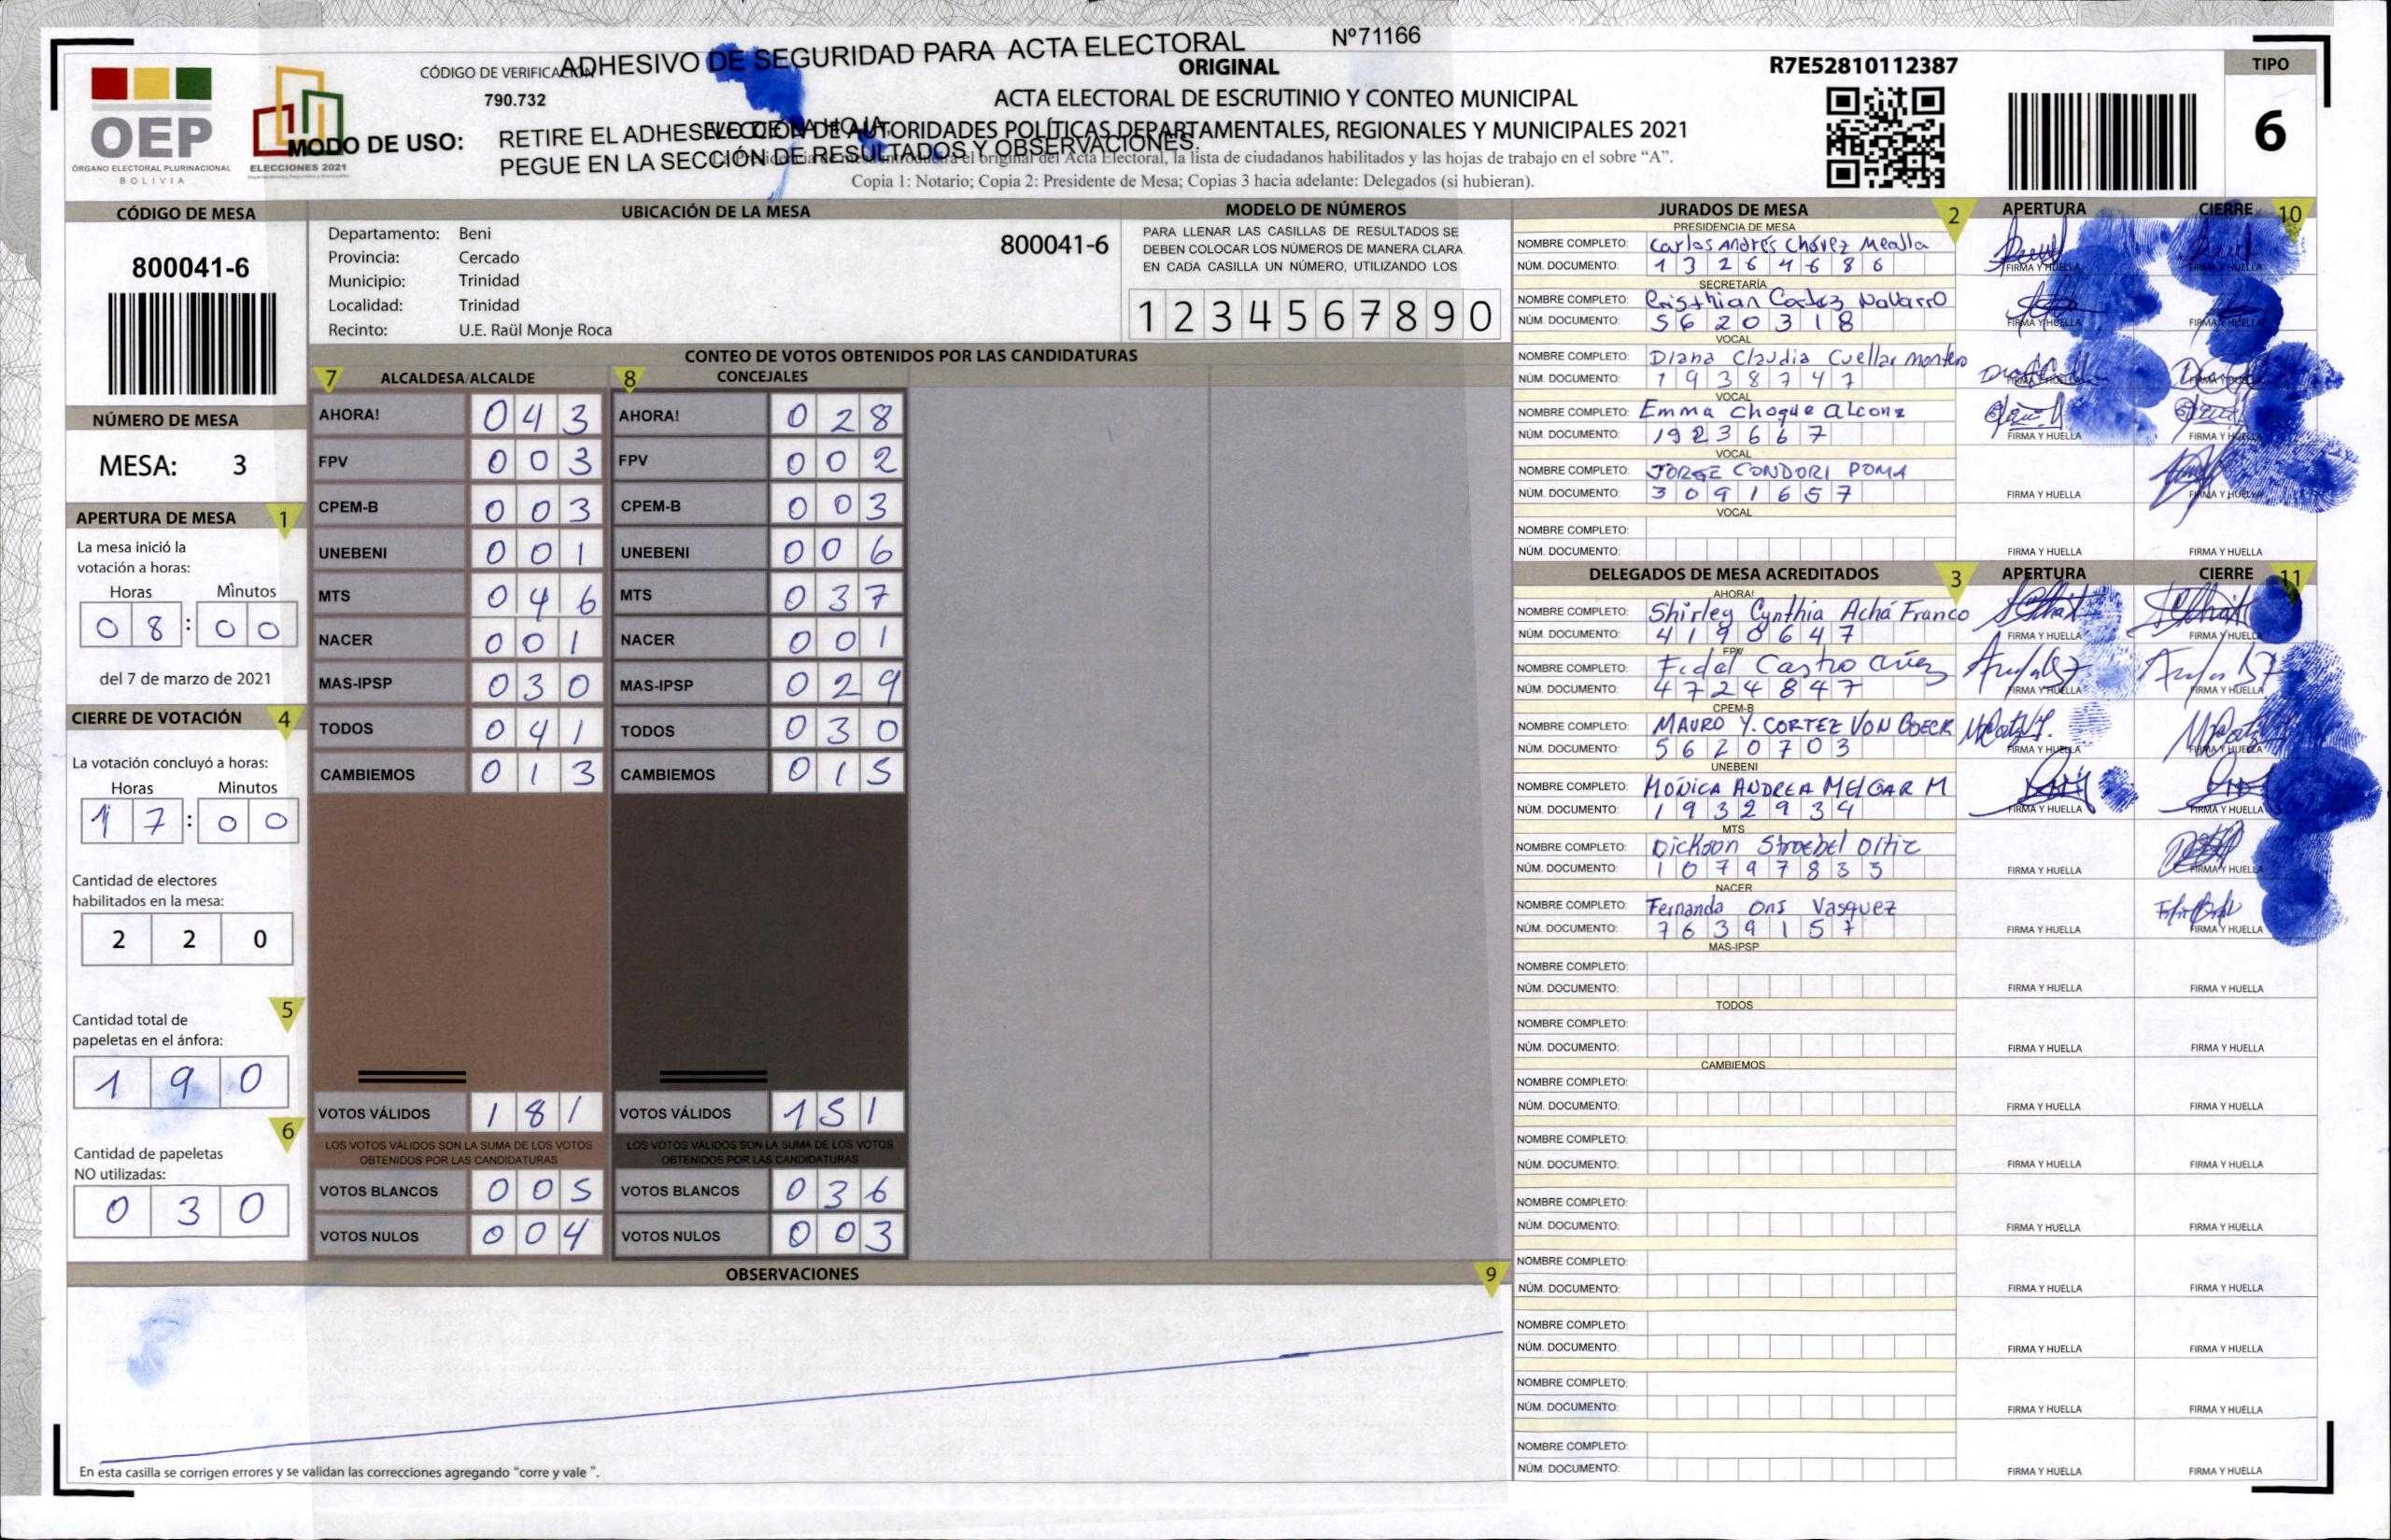 ADHESIVO DE SEGURIDAD PARA ACTA ELECTORAL
Nº71166
CÓDIGO DE VERIFICACIÓN
790.732
ORIGINAL
R7E52810112387
TIPO
6
OEP
ÓRGANO ELECTORAL PLURINACIONAL
BOLIVIA
ELECCIONES 2021
ACTA ELECTORAL DE ESCRUTINIO Y CONTEO MUNICIPAL
ELECCIÓN DE AUTORIDADES POLÍTICAS DEPARTAMENTALES, REGIONALES Y MUNICIPALES 2021
MODO DE USO:
RETIRE EL ADHESIVO DE LA HOJA.
PEGUE EN LA SECCIÓN DE RESULTADOS Y OBSERVACIONES.
el original del Acta Electoral, la lista de ciudadanos habilitados y las hojas de trabajo en el sobre “A”.
Copia 1: Notario; Copia 2: Presidente de Mesa; Copias 3 hacia adelante: Delegados (si hubieran).
CÓDIGO DE MESA
800041-6
NÚMERO DE MESA
MESA: 3
APERTURA DE MESA 1
La mesa inició la
votación a horas:
Horas Minutos
08:00
del 7 de marzo de 2021
CIERRE DE VOTACIÓN 4
La votación concluyó a horas:
Horas Minutos
17:00
Cantidad de electores
habilitados en la mesa:
220
5
Cantidad total de
papeletas en el ánfora:
190
6
Cantidad de papeletas
NO utilizadas:
030
UBICACIÓN DE LA MESA
Departamento: Beni
Provincia: Cercado
Municipio: Trinidad
Localidad: Trinidad
Recinto: U.E. Raül Monje Roca
800041-6
MODELO DE NÚMEROS
PARA LLENAR LAS CASILLAS DE RESULTADOS SE
DEBEN COLOCAR LOS NÚMEROS DE MANERA CLARA.
EN CADA CASILLA UN NÚMERO, UTILIZANDO LOS
1 2 3 4 5 6 7 8 9 0
CONTEO DE VOTOS OBTENIDOS POR LAS CANDIDATURAS
7 ALCALDESA/ALCALDE 8 CONCEJALES
AHORA! 043 AHORA! 028
FPV 003 FPV 002
CPEM-B 003 CPEM-B 003
UNEBENI 001 UNEBENI 006
MTS 046 MTS 037
NACER 001 NACER 001
MAS-IPSP 030 MAS-IPSP 029
TODOS 041 TODOS 030
CAMBIEMOS 013 CAMBIEMOS 015
VOTOS VÁLIDOS 181 VOTOS VÁLIDOS 151
LOS VOTOS VÁLIDOS SON LA SUMA DE LOS VOTOS LOS VOTOS VÁLIDOS SON LA SUMA DE LOS VOTOS
OBTENIDOS POR LAS CANDIDATURAS OBTENIDOS POR LAS CANDIDATURAS
VOTOS BLANCOS 005 VOTOS BLANCOS 036
VOTOS NULOS 004 VOTOS NULOS 003
OBSERVACIONES 9
En esta casilla se corrigen errores y se validan las correcciones agregando “corre y vale ”.
JURADOS DE MESA 2 APERTURA CIERRE 10
PRESIDENCIA DE MESA
NOMBRE COMPLETO: Carlos Andrés Chávez Mealla
NÚM. DOCUMENTO: 13264686 FIRMA Y HUELLA FIRMA Y HUELLA
SECRETARÍA
NOMBRE COMPLETO: Cristhian Cortez Navarro
NÚM. DOCUMENTO: 5620318 FIRMA Y HUELLA FIRMA Y HUELLA
VOCAL
NOMBRE COMPLETO: Diana Claudia Cuellar Montero
NÚM. DOCUMENTO: 1938747 FIRMA Y HUELLA FIRMA Y HUELLA
VOCAL
NOMBRE COMPLETO: Emma Choque Alconz
NÚM. DOCUMENTO: 1923667 FIRMA Y HUELLA FIRMA Y HUELLA
VOCAL
NOMBRE COMPLETO: JORGE CONDORI POMA
NÚM. DOCUMENTO: 3091657 FIRMA Y HUELLA FIRMA Y HUELLA
VOCAL
NOMBRE COMPLETO:
NÚM. DOCUMENTO: FIRMA Y HUELLA FIRMA Y HUELLA
DELEGADOS DE MESA ACREDITADOS 3 APERTURA CIERRE 11
AHORA!
NOMBRE COMPLETO: Shirley Cynthia Achá Franco
NÚM. DOCUMENTO: 4190647 FIRMA Y HUELLA FIRMA Y HUELLA
FPV
NOMBRE COMPLETO: Fidel Castro
NÚM. DOCUMENTO: 4724847 FIRMA Y HUELLA FIRMA Y HUELLA
CPEM-B
NOMBRE COMPLETO: MAURO Y. CORTEZ VON BOECK
NÚM. DOCUMENTO: 5620703 FIRMA Y HUELLA FIRMA Y HUELLA
UNEBENI
NOMBRE COMPLETO: MÓNICA ANDREA MELGAR M
NÚM. DOCUMENTO: 1932934 FIRMA Y HUELLA FIRMA Y HUELLA
MTS
NOMBRE COMPLETO: Dickson Stroebel Ortiz
NÚM. DOCUMENTO: 10797833 FIRMA Y HUELLA FIRMA Y HUELLA
NACER
NOMBRE COMPLETO: Fernanda Oni Vasquez
NÚM. DOCUMENTO: 7639157 FIRMA Y HUELLA FIRMA Y HUELLA
MAS-IPSP
NOMBRE COMPLETO:
NÚM. DOCUMENTO: FIRMA Y HUELLA FIRMA Y HUELLA
TODOS
NOMBRE COMPLETO:
NÚM. DOCUMENTO: FIRMA Y HUELLA FIRMA Y HUELLA
CAMBIEMOS
NOMBRE COMPLETO:
NÚM. DOCUMENTO: FIRMA Y HUELLA FIRMA Y HUELLA
NOMBRE COMPLETO:
NÚM. DOCUMENTO: FIRMA Y HUELLA FIRMA Y HUELLA
NOMBRE COMPLETO:
NÚM. DOCUMENTO: FIRMA Y HUELLA FIRMA Y HUELLA
NOMBRE COMPLETO:
NÚM. DOCUMENTO: FIRMA Y HUELLA FIRMA Y HUELLA
NOMBRE COMPLETO:
NÚM. DOCUMENTO: FIRMA Y HUELLA FIRMA Y HUELLA
NOMBRE COMPLETO:
NÚM. DOCUMENTO: FIRMA Y HUELLA FIRMA Y HUELLA
NOMBRE COMPLETO:
NÚM. DOCUMENTO: FIRMA Y HUELLA FIRMA Y HUELLA